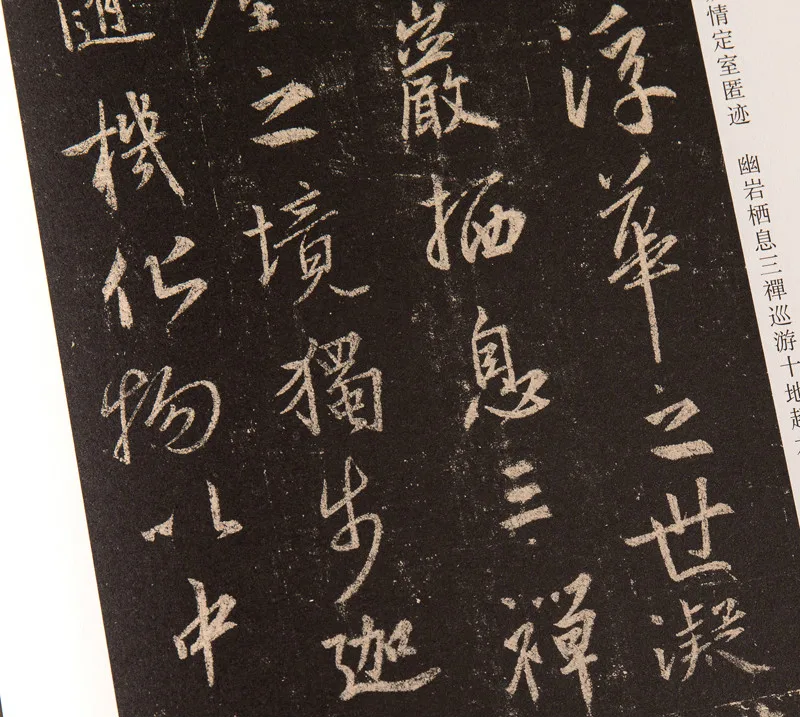 情定室匿迹　幽岩栖息三禪巡游十地超
浮華之世凝
巖栖息三禪
塵之境獨步迦
隨機化物以中